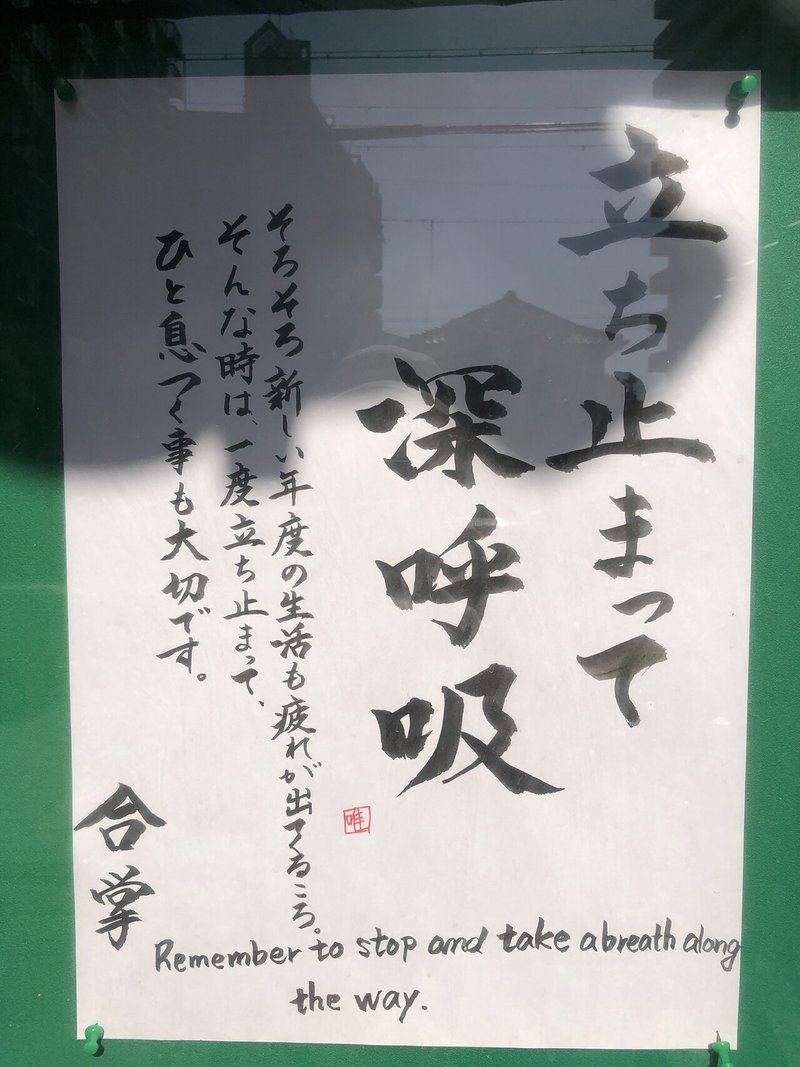 立ち止まって
深呼吸
そろそろ新しい年度の生活も疲れが出てくるころ。
そんな時は、一度立ち止まって、
ひと息つく事も大切です。
合掌
唯
Remember to stop and take a breath along
the way.